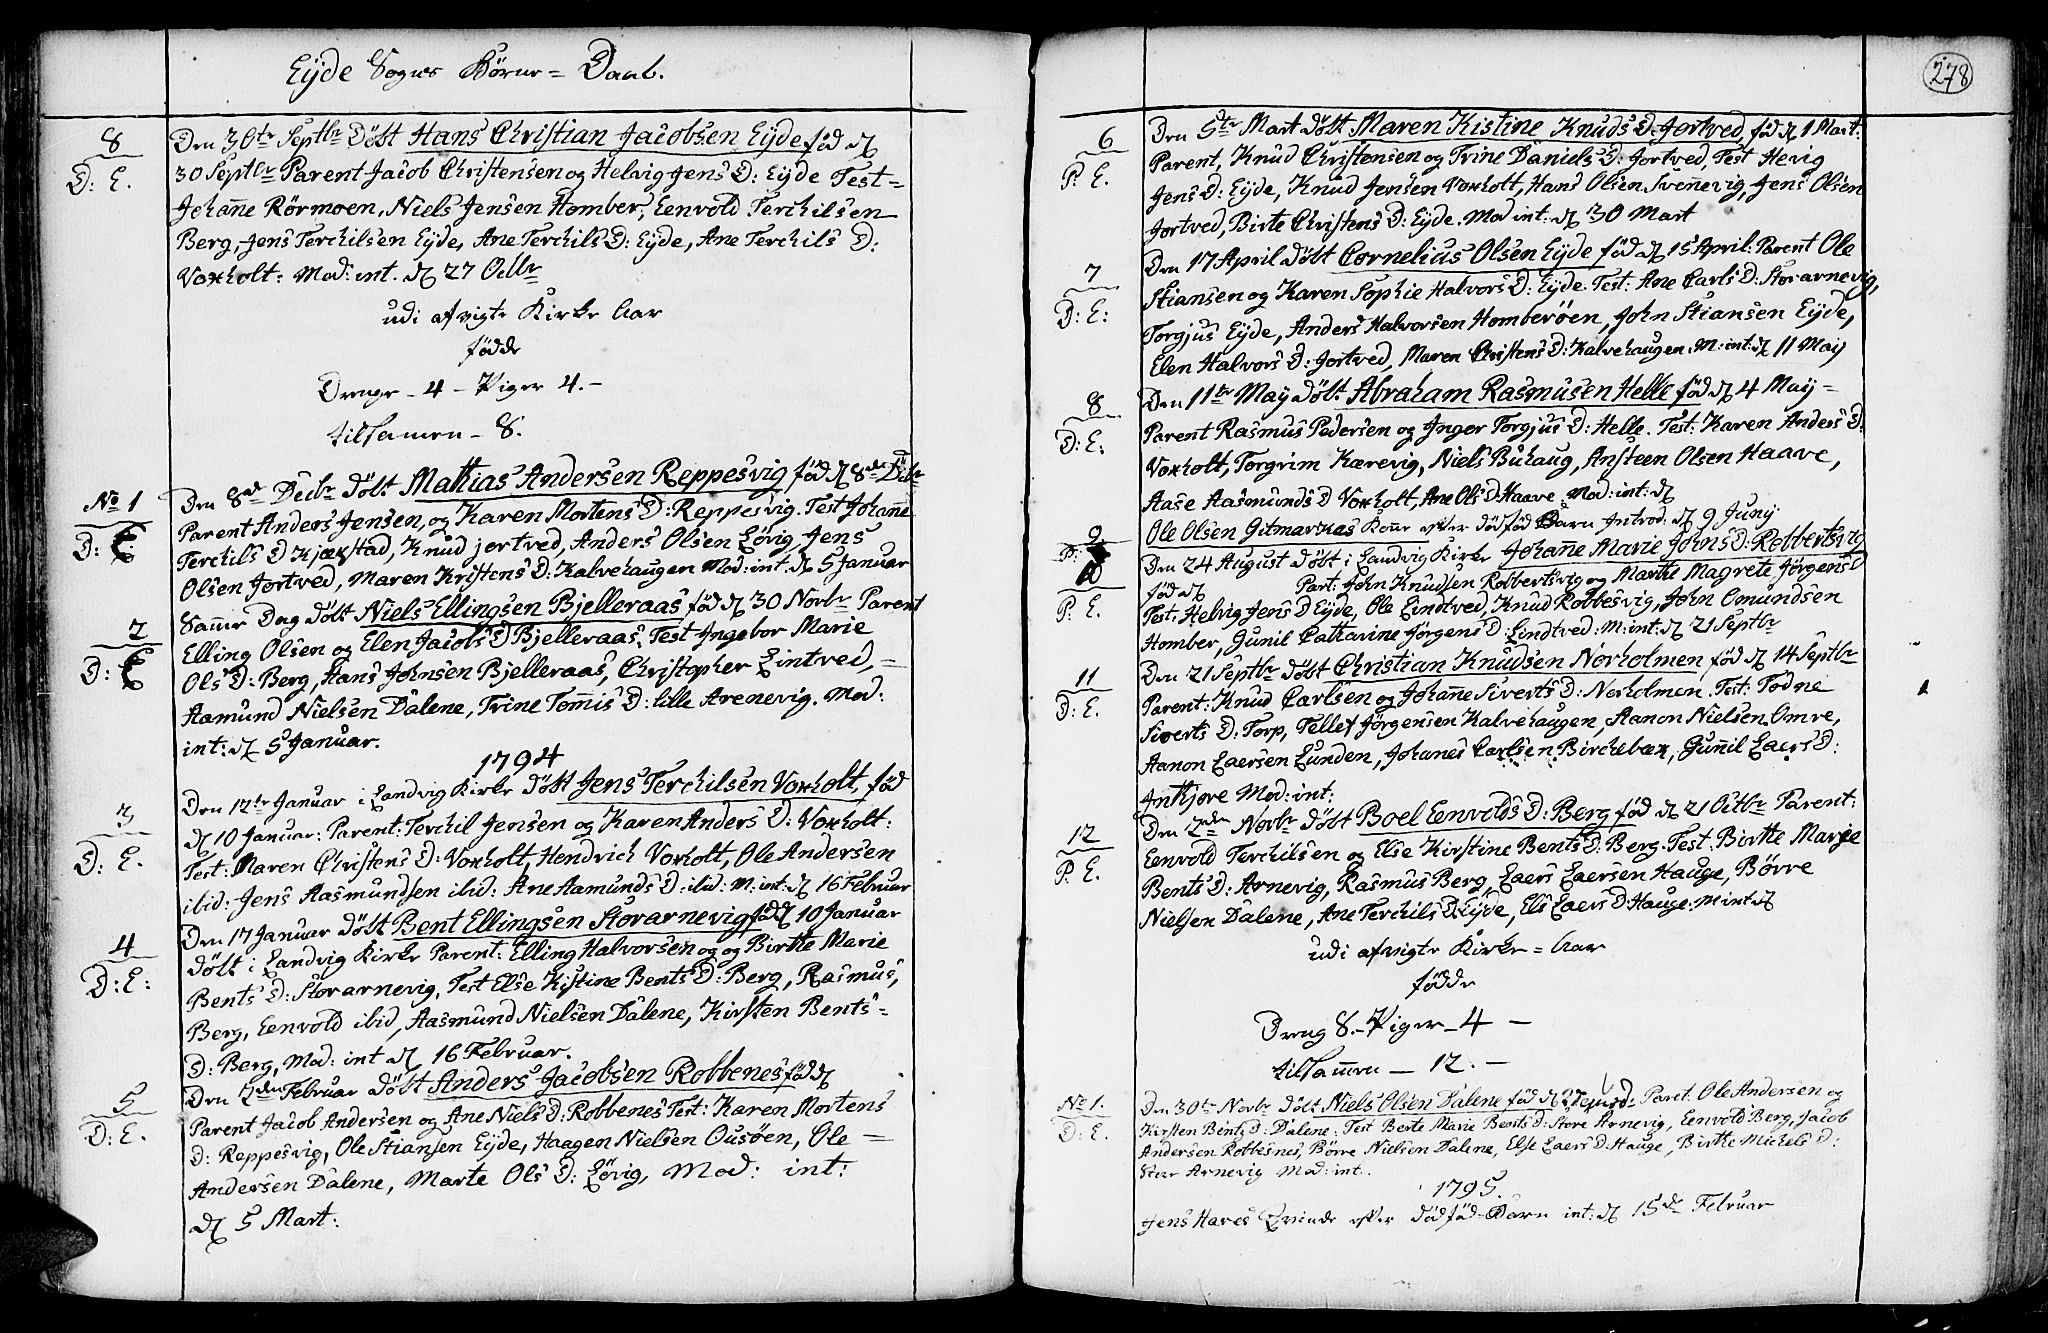 Eÿde Sogns Börne = Daab.
8
D: E.
Den 30te Septbr Döbt Hans Christian Jacobsen Eÿde föd d
30 Septbr Parent Jacob Christensen og Helvig Jens D: Eÿde Test=
Johañe Rörmoen, Niels Jensen Homber, Eenvold Terchilsen
Berg, Jens Terchilsen Eÿde, Ane Terchils D: Eÿde, Ane Terchils D:
Voxholt: Mod: int. d 27 Octbr
udi afvigte Kirke Aar
födde
Drenge - 4 - Piger 4. -
tilsamen - 8.
No 1
D: E.
Den 8de Decbr Döbt Mathias Andersen Reppesvig föd d 8de Decbr
Parent Anders Jensen, og Karen Mortens D: Reppesvig. Test Johañe
Terchils D Kjærstad, Knud jortved, Anders Olsen Lövig, Jens
Olsen Jortved, Maren Kristens D: Kalvehaugen Mod: int: d 5 Januar
2
D: E
Same Dag Döbt Niels Ellingsen Bjelleraas föd d 30 Novbr Parent
Elling Olsen og Elen Jacobs D Bjelleraas, Test Ingebor Marie
Ols D: Berg, Hans Johnsen Bjelleraas, Christopher Lintved, =
Aamund Nielsen Dalene, Trine Tom̃is D: lille Arenevig. Mod:
int: d 5 Januar.
1794
3
D: E.
Den 12te Januar i Landvig Kirke Döbt Jens Terchilsen Voxholt, föd
d 10 Januar: Parent: Terchil Jensen og Karen Anders D: Voxholt:
Test: Maren Christens D: Voxholt, Hendrich Voxholt, Ole Andersen
ibid: Jens Aasmundsen ibid: Ane Aamunds D: ibid: M: int: d 16 Februar
4
D: E:
Den 17 Januar Döbt Bent Ellingsen Storarnevig föd d 10 Januar
Döbt i Landvig Kirke Parent: Elling Halvorsen og og Birthe Marie
Bents D: Storarnevig, Test Else Kistine Bents D: Berg, Rasmus,
Berg, Eenvold ibid, Aasmund Nielsen Dalene, Kirsten Bents-
D: Berg, Mod: int d 16 Februar.
5
D: E.
Den 2den Februar Döbt Anders Jacobsen Robbenes föd d
Parent Jacob Andersen og Ane Niels D: Robbenes Test: Karen Mortens
D: Reppesvig, Ole Stiansen Eÿde, Haagen Nielsen Ousöen, Ole =
Andersen Dalene, Marte Ols D: Lövig, Mod: int:
d 5 Mart:
278
6
P: E.
Den 5te Mart Döbt Maren Kistine Knuds D: Jortved, föd d 1 Mart:
Parent, Knud Christensen og Trine Daniels D: Jortved, Test Hevig
Jens D: Eÿde, Knud Jensen Voxholt, Hans Olsen Sveñevig, Jens Olsen
Jortved, Birte Christens D: Eÿde. Mod int: d 30 Mart
7
D: E:
Den 17 April Döbt Cornelius Olsen Eÿde föd d 15 April: Parent Ole
Stiansen og Karen Sophie Halvors D: Eÿde. Test: Ane Carls D: Storarnevig,
Torgjus Eÿde, Anders Halvorsen Homberöen, John Stiansen Eÿde,
Elen Halvors D: Jortved, Maren Christens D: Kalvehaugen. M: int: d 11 Maÿ
8
D: E:
Den 11te Maÿ Döbt Abraham Rasmusen Helle föd d 4 Maÿ =
Parent Rasmus Pedersen og Inger Torgjus D: Helle. Test: Karen Anders D.
Voxholt, Torgrim Kærevig, Niels Buhaug, Ansteen Olsen Haave,
Aase Aasmunds D Voxholt, Ane Ols D: Haave. Mod: int: d
9
Ole Olsen Gitmarknas Kone efter dödföd Barn Introd. d 9 Junÿ
10
P: E.
Den 24 August döbt i Landvig Kirke Johañe Marie Johns D: Robbertsvig
föd d Part: John Knudsen Robbertsvig og Marthe Magrete Jörgens D
Test, Helvig Jens D Eÿde, Ole Lindtved, Knud Robbesvig, John Omundsen
Homber, Gunil Catharine Jörgens D: Lindtved: M: int: d 21 Septbr
11
D: E.
Den 21 Septbr döbt Christian Knudsen Norholmen föd d 14 Septbr
Parent: Knud Carlsen og Johañe Siverts D: Norholmen. Test: Tödne
Siverts D: Torp, Tellef Jörgensen Kalvehaugen, Aanon Nielsen Omre,
Aanon Laersen Lunden, Johanes Carlsen Birchebæk, Guñil Laers D:
Inkjore Mod: int:
12
P: E.
Den 2den Novbr döbt Boel Eenvolds D: Berg föd d 21 Octbr Parent:
Eenvold Terchilsen og Else Kirstine Bents D: Berg. Test. Birthe Marie
Bents D: Arnevig, Rasmus Berg, Laers Laersen Hauge, Börre
Nielsen Dalene, Ane Terchils D: Eÿde, Els Laers D: Hauge: M int d
udi afvigte Kirke = Aar
födde
Dreng 8. - Piger - 4 -
tilsam̃en - 12. -
No 1.
D: E.
Den 30te Novbr Döbt Niels Olsen Dalene föd d Paret. Ole Andersen og
Kirsten Bents D: Dalene: Test Berte Marie Bents D: Store Arnevig, Eenvold Berg, Jacob
Andersen Robbesnes, Börre Nielsen Dalene, Else Laers D: Hauge, Birthe Michels D:
Store Arnevig Mod: int.
1795.
Jens Haves Qvinde efter Dödföd Barn int: d 15de Februar